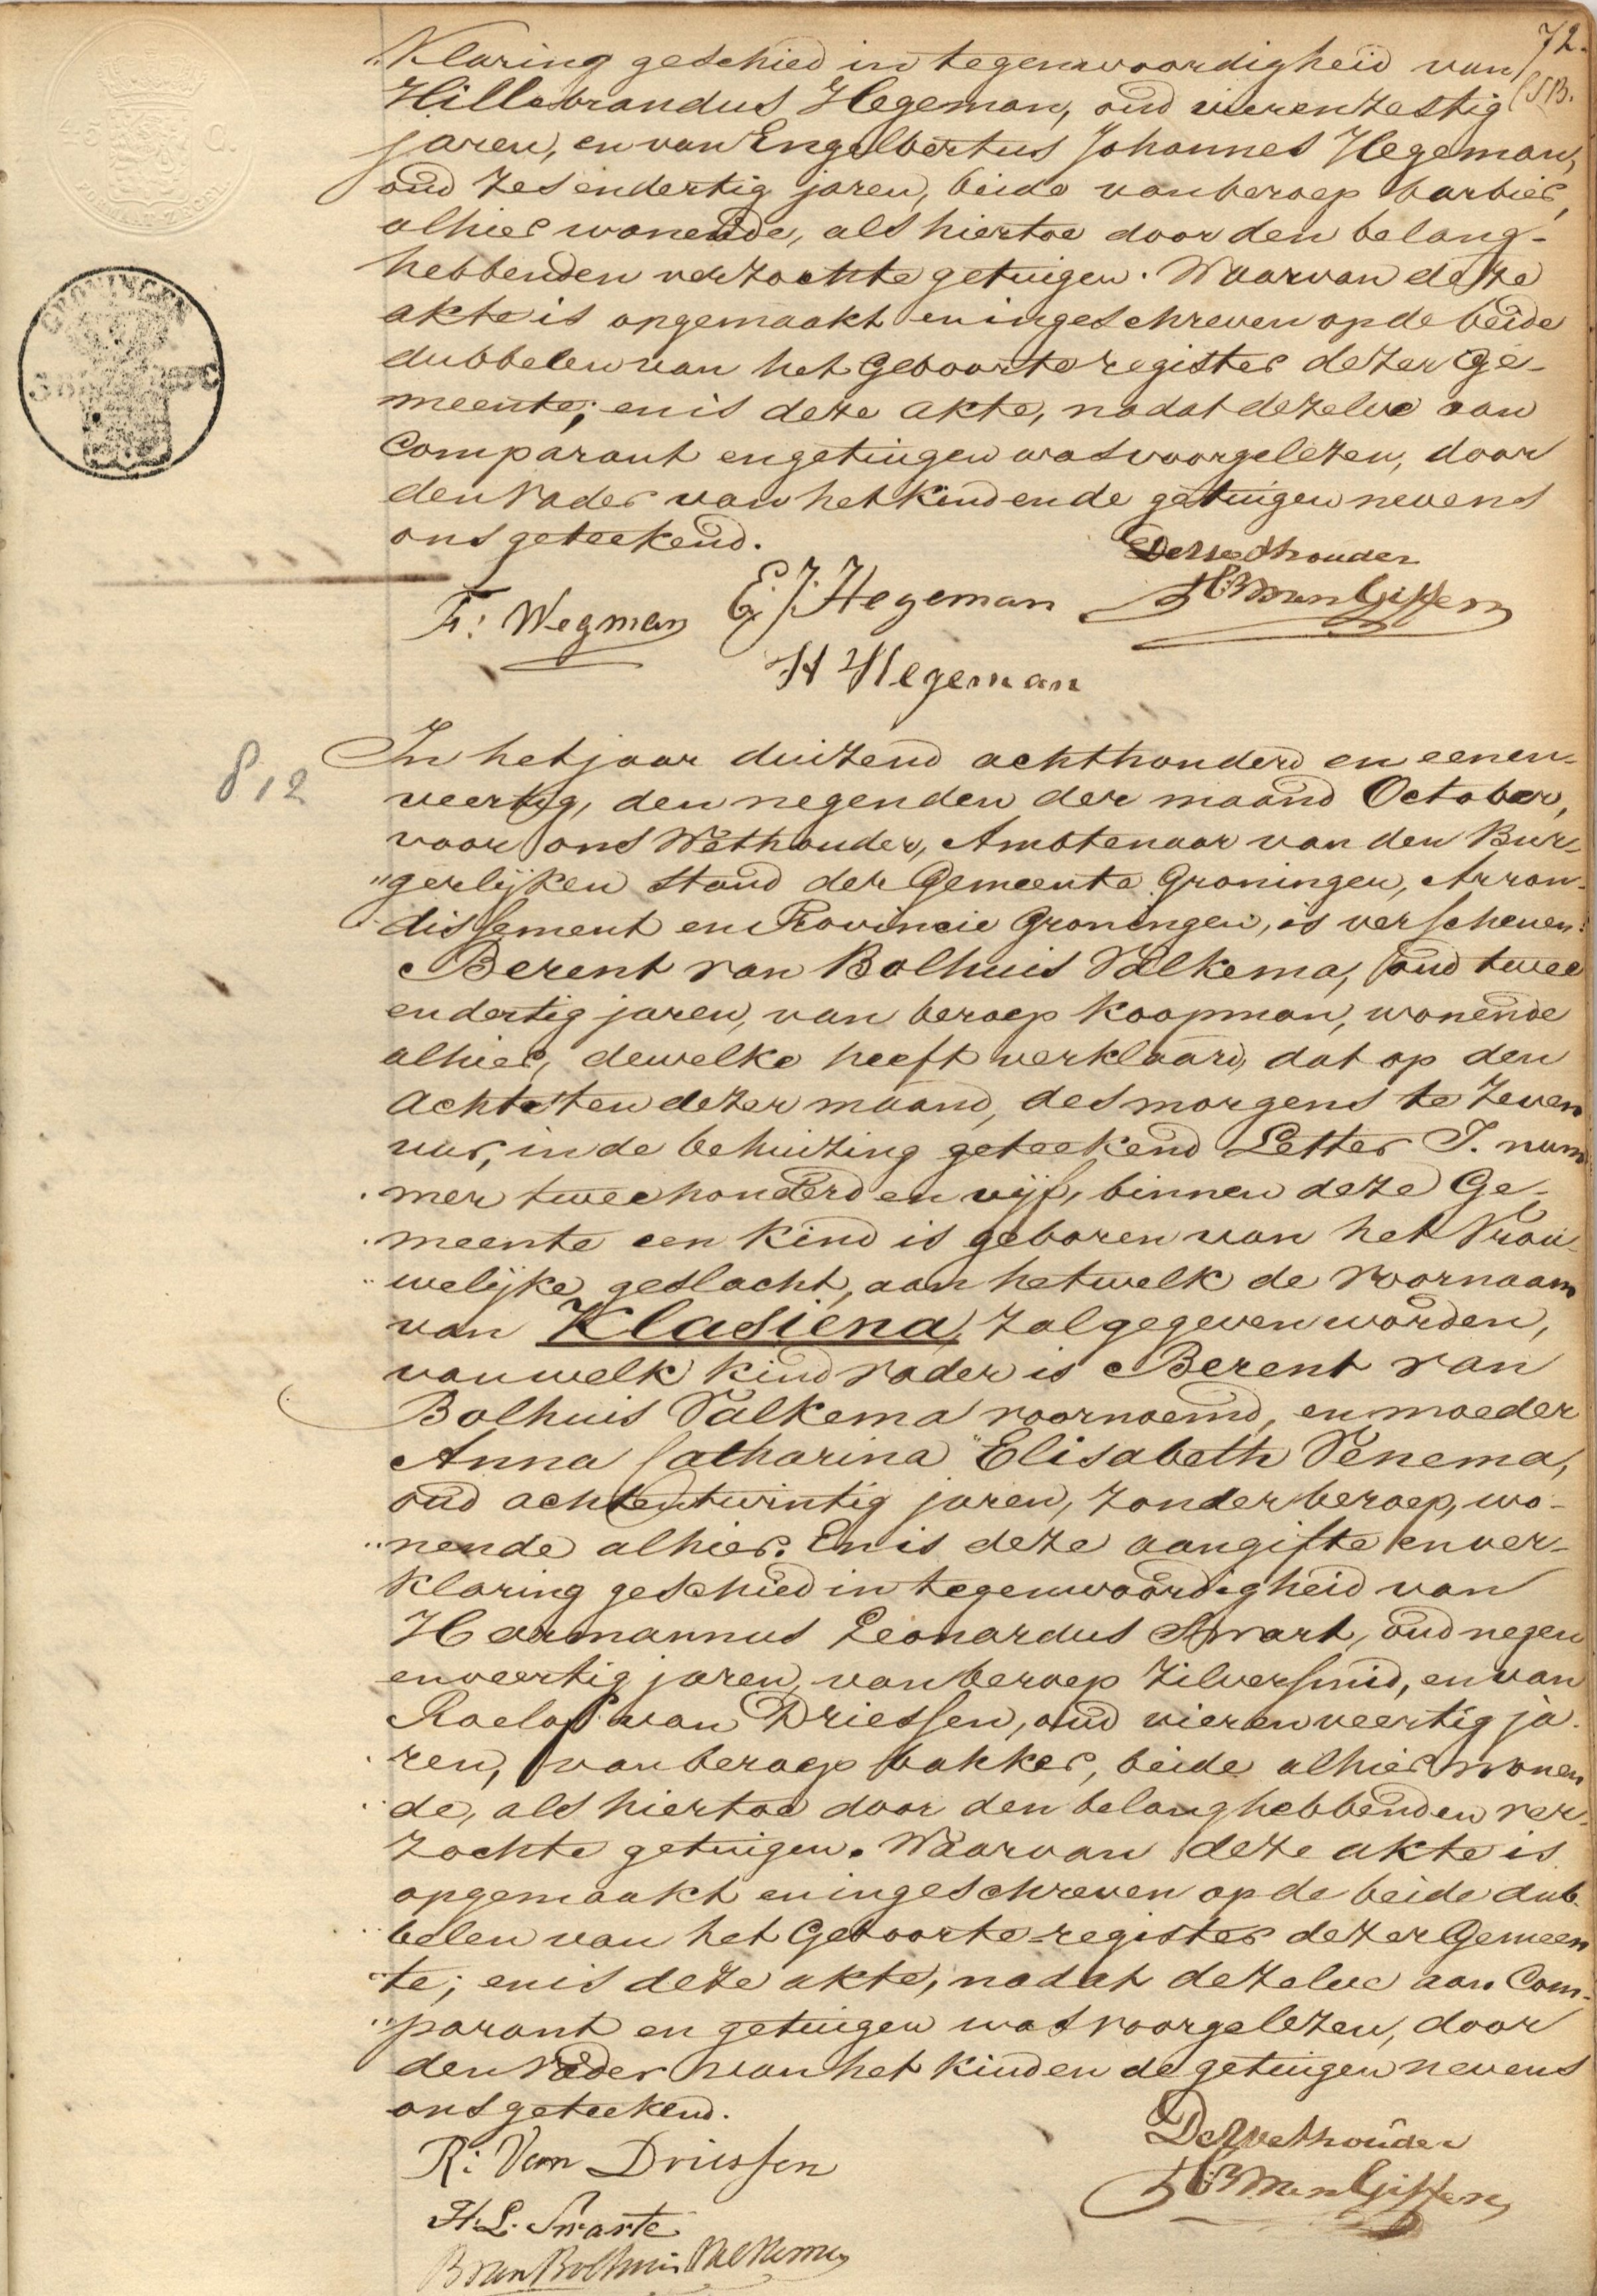 72.
klaring geschied in tegenwoordigheid van
Hillebrandus Hegeman, oud vierenzestig
jaren, en van Engelbertus Johannes Hegeman,
oud zesendertig jaren, beide van beroep barbier,
alhier wonende, als hiertoe door den belang-
hebbenden verzochte getuigen. Waarvan deze
akte is opgemaakt en ingeschreven op de beide
dubbelen van het Geboorte register dezer Ge-
meente; en is deze akte, nadat dezelve aan
Comparant en getuigen was voorgelezen, door
den Vader van het kind en de getuigen nevens
ons geteekend.
De Wethouder
F: Wegman E. J. Hegeman
H Hegeman
GRONINGEN
812
In het jaar duizend achthonderd en eenen-
veertig, den negenden der maand October,
voor ons Wethouder, Ambtenaar van den Bur-
"gerlijken Stand der Gemeente Groningen, Arron-
dissement en Provincie Groningen, is verschenen:
Berent van Bolhuis Valkema, oud twee
endertig jaren, van beroep koopman, wonende
alhier, dewelke heeft verklaard, dat op den
achtsten dezer maand, des morgens te zeven
uur, in de behuizing geteekend Letter I. num
mer tweehonderd en vijf, binnen deze Ge-
meente een kind is geboren van het Vrou-
welijke geslacht, aan hetwelk de Voornaam
van Klasiena zal gegeven worden,
van welk kind vader is Berent van
Bolhuis Valkema voornoemd, en moeder
Anna Catharina Elisabeth Venema,
oud achtentwintig jaren, zonder beroep, wo-
"nende alhier. En is deze aangifte en ver-
klaring geschied in tegenwoordigheid van
Harmannus Leonardus Swart, oud negen
enveertig jaren, van beroep zilversmid, en van
Roelof van Driessen, oud vierenveertig ja-
ren, van beroep bakker, beide alhier wonen
de, als hiertoe door den belanghebbenden ver-
zochte getuigen. Waarvan deze akte is
opgemaakt en ingeschreven op de beide dub-
belen van het Geboorte-register dezer Gemeen
te; en is deze akte, nadat dezelve aan Com-
"parant en getuigen was voorgelezen, door
den Vader van het kind en de getuigen nevens
ons geteekend.
De Wethouder
R: Van Driessen
H. L. Swarte
B van Bolhuis Valkema